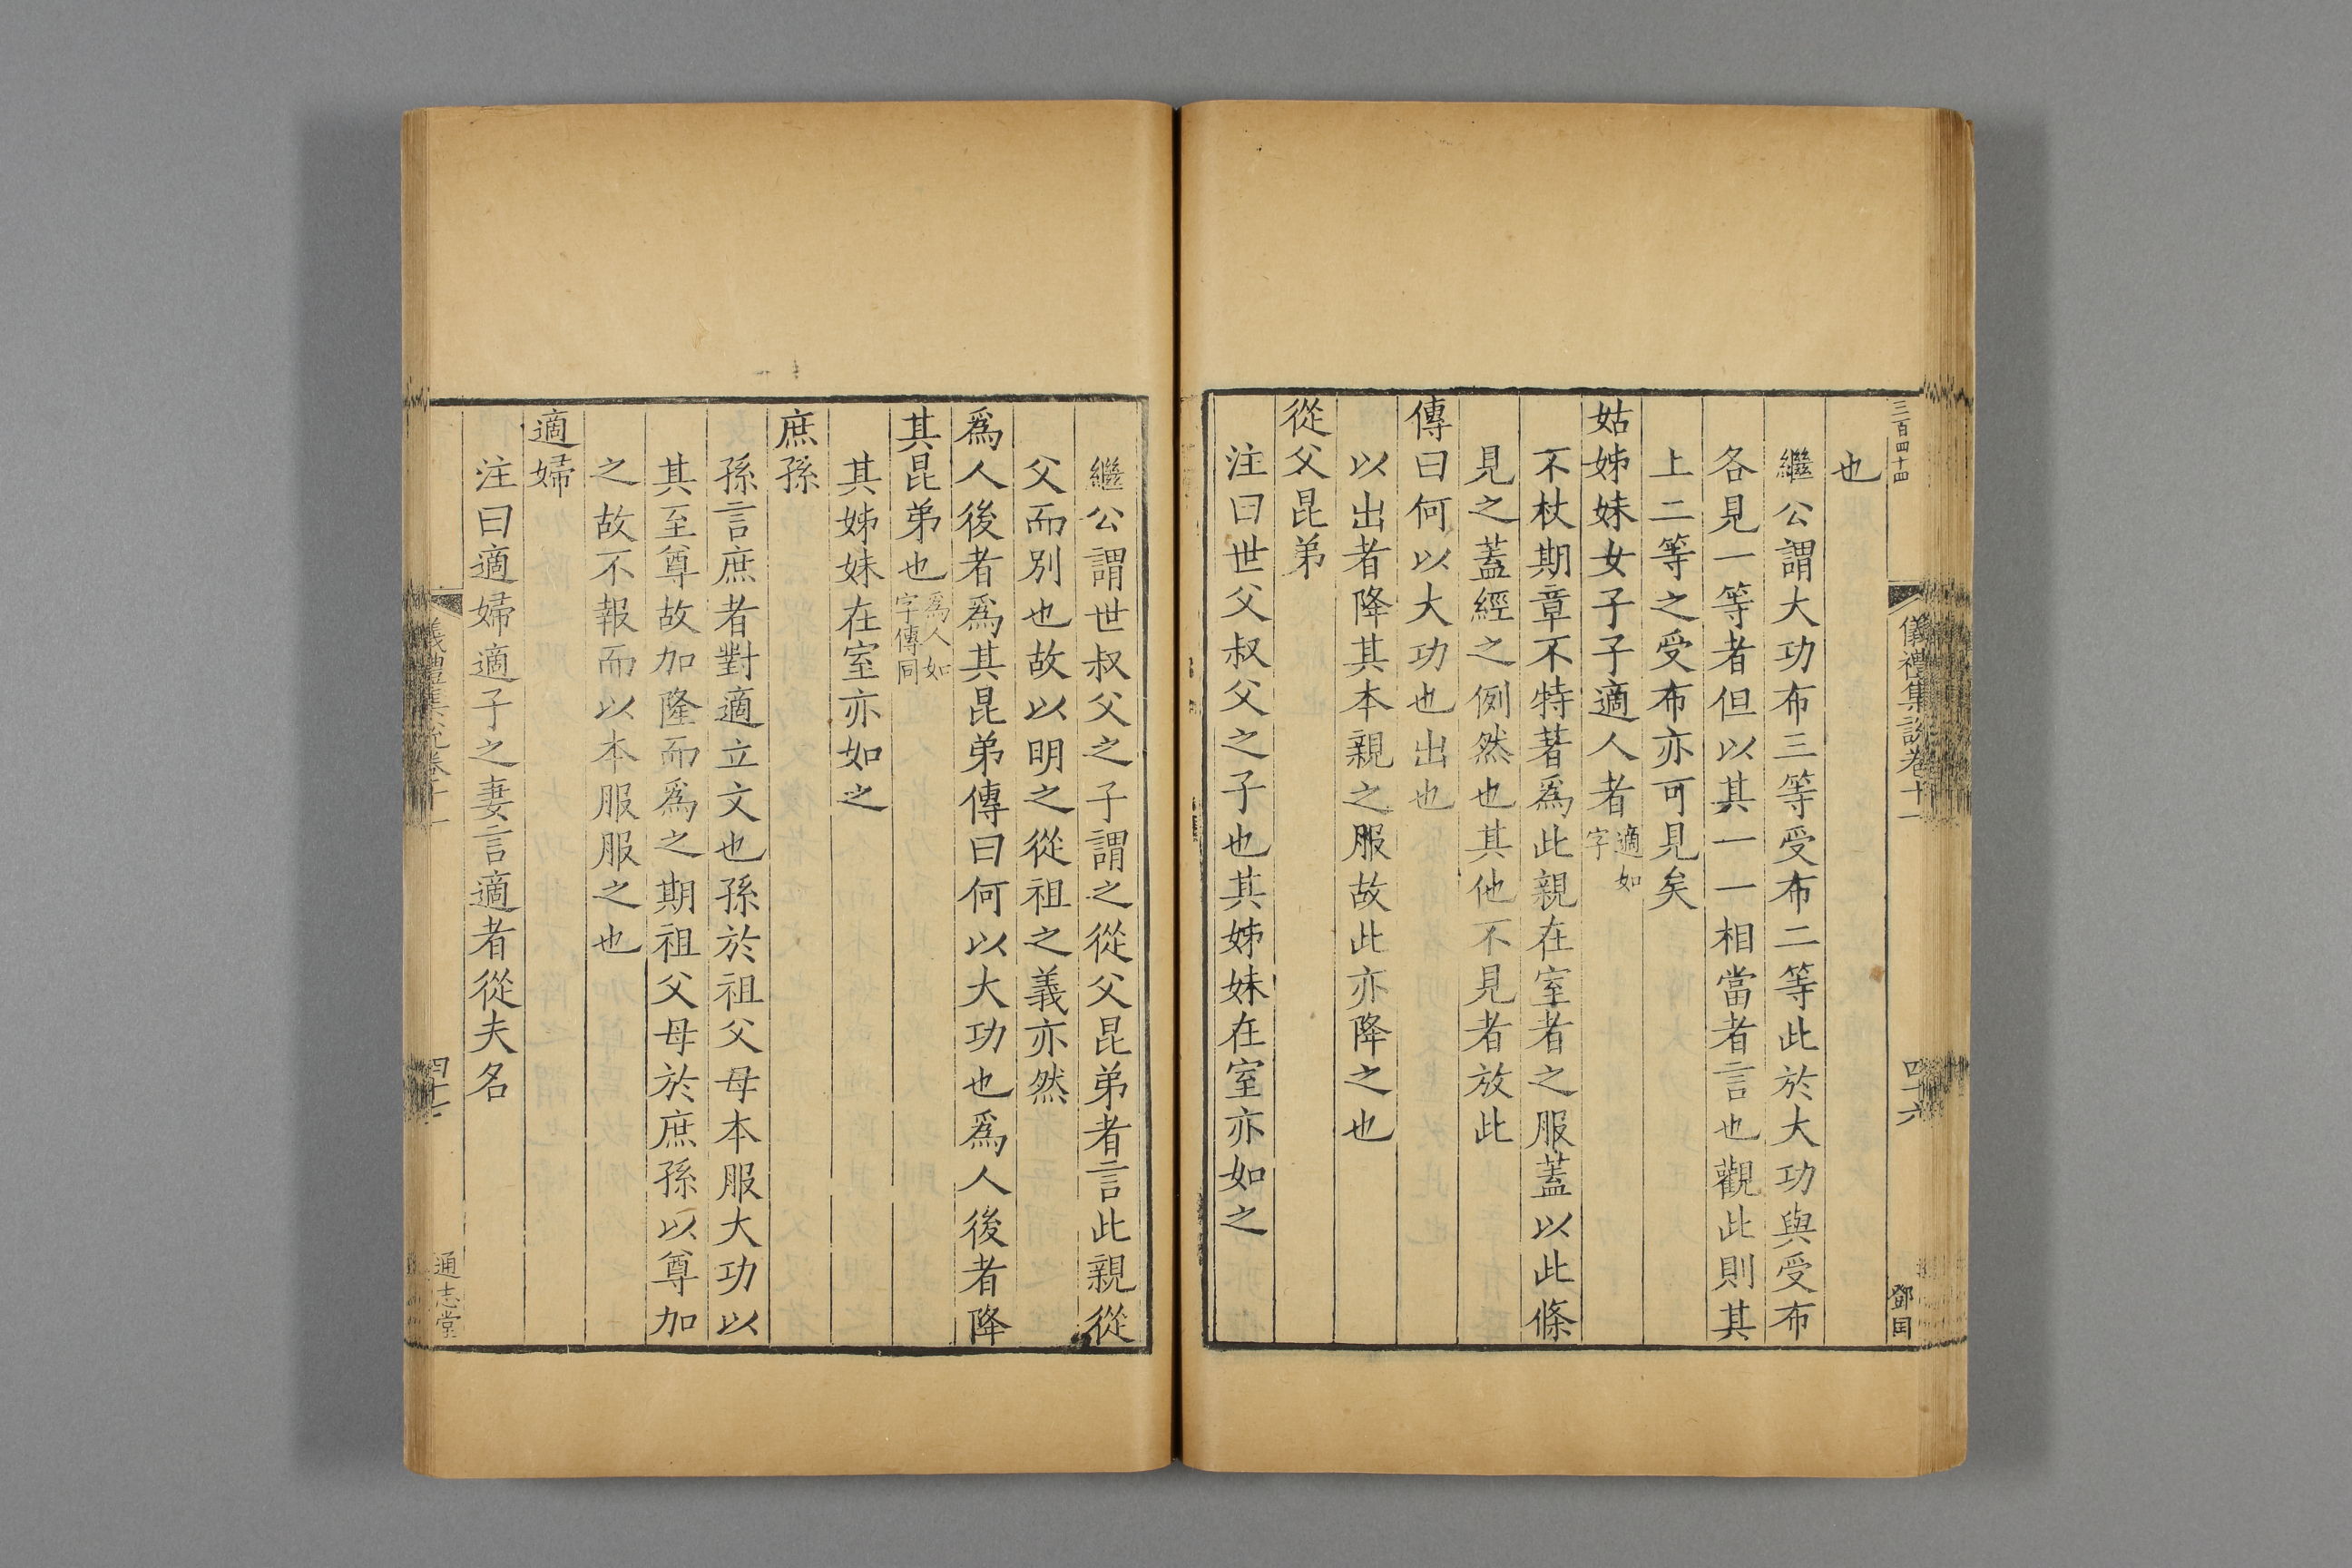 三百四十四
儀禮集說卷十一
四十六
鄧国
也
繼公謂大功布三等受布二等此於大功與受布
各見一等者但以其一一相當者言也觀此則其
上二等之受布亦可見矣
姑姊妹女子子適人者適如字
不杖期章不特著爲此親在室者之服蓋以此條
見之蓋經之例然也其他不見者放此
傳曰何以大功也出也
以出者降其本親之服故此亦降之也
從父昆弟
注曰世父叔父之子也其姊妹在室亦如之
繼公謂世叔父之子謂之從父昆弟者言此親從
父而別也故以明之從祖之義亦然
爲人後者爲其昆弟傳曰何以大功也爲人後者降
其昆弟也爲人如字傳同
其姊妹在室亦如之
庶孫
孫言庶者對適立文也孫於祖父母本服大功以
其至尊故加隆而爲之期祖父母於庶孫以尊加
之故不報而以本服服之也
適婦
注曰適婦適子之妻言適者從夫名
儀禮集說卷十一
四十七
通志堂